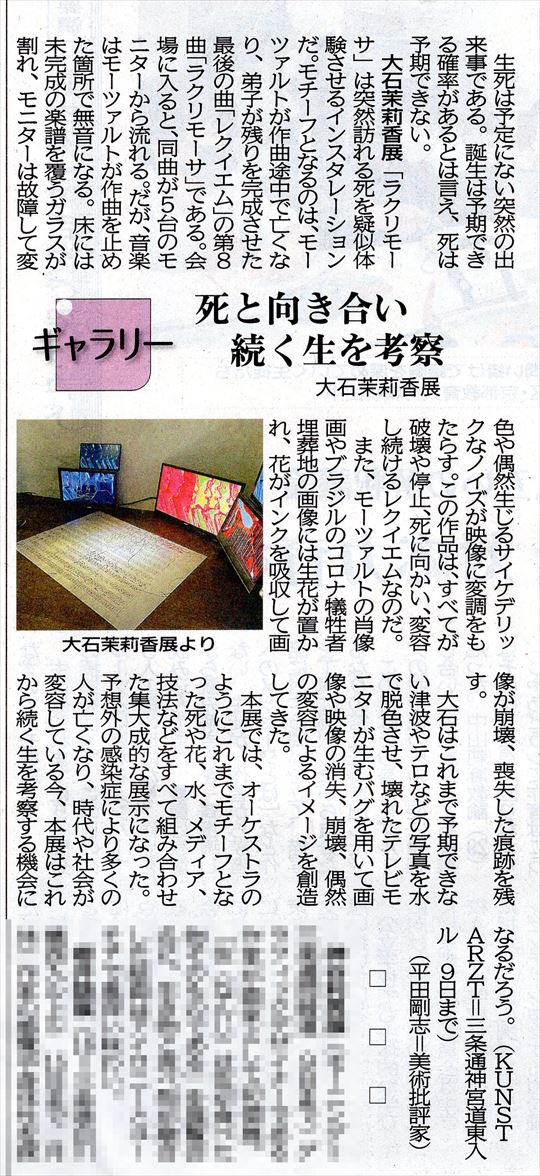 ギャラリー
死と向き合い
続く生を考察
大石茉莉香展
生死は予定にない突然の出
来事である。誕生は予期でき
る確率があるとは言え、死は
予期できない。
大石茉莉香展「ラクリモー
サ」は突然訪れる死を疑似体
験させるインスタレーション
だ。モチーフとなるのは、モー
ツァルトが作曲途中で亡くな
り、弟子が残りを完成させた
最後の曲「レクイエム」の第８
曲「ラクリモーサ」である。会
場に入ると、同曲が５台のモ
ニターから流れる。だが、音楽
はモーツァルトが作曲を止め
た箇所で無音になる。床には
未完成の楽譜を覆うガラスが
割れ、モニターは故障して変
色や偶然生じるサイケデリッ
クなノイズが映像に変調をも
たらす。この作品は、すべてが
破壊や停止、死に向かい、変容
し続けるレクイエムなのだ。
また、モーツァルトの肖像
画やブラジルのコロナ犠牲者
埋葬地の画像には生花が置か
れ、花がインクを吸収して画
大石茉莉香展より
像が崩壊、喪失した痕跡を残
す。
大石はこれまで予期できな
い津波やテロなどの写真を水
で脱色させ、壊れたテレビモ
ニターが生むバグを用いて画
像や映像の消失、崩壊、偶然
の変容によるイメージを創造
してきた。
本展では、オーケストラの
ようにこれまでモチーフとな
った死や花、水、メディア、
技法などをすべて組み合わせ
た集大成的な展示になった。
予想外の感染症により多くの
人が亡くなり、時代や社会が
変容している今、本展はこれ
から続く生を考察する機会に
なるだろう。（ＫＵＮＳＴ
ＡＲＺＴ＝三条通神宮道東入
ル　９日まで）
（平田剛志＝美術批評家）
□　□　□